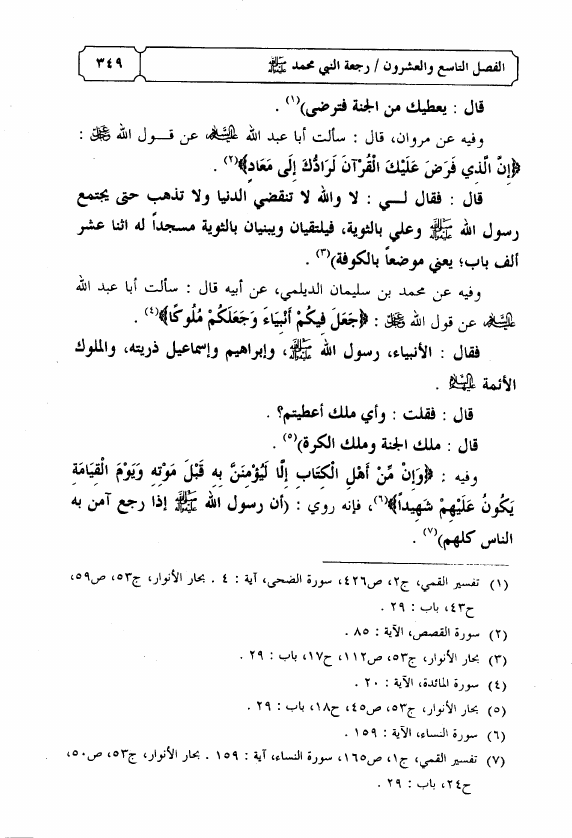 الفصل التاسع والعشرون / رجعة النبي محمد ﷺ ٣٤٩
قال : يعطيك من الجنة فترضى)(١) .
وفيه عن مروان، قال : سألت أبا عبد الله عليه السلام عن قـول الله عز وجل :
﴿إِنَّ الَّذِي فَرَضَ عَلَيْكَ الْقُرْآنَ لَرَادُّكَ إِلَى مَعَادٍ﴾(٢) .
قال : فقال لـي : لا والله لا تنقضي الدنيا ولا تذهب حتى يجتمع
رسول الله ﷺ وعلي بالثوية، فيلتقيان ويبنيان بالثوية مسجداً له اثنا عشر
ألف باب؛ يعني موضعاً بالكوفة)(٣) .
وفيه عن محمد بن سليمان الديلمي، عن أبيه قال : سألت أبا عبد الله
عليه السلام عن قول الله عز وجل : ﴿جَعَلَ فِيكُمْ أَنْبِيَاءَ وَجَعَلَكُمْ مُلُوكًا﴾(٤) .
فقال : الأنبياء، رسول الله ﷺ، وإبراهيم وإسماعيل ذريته، والملوك
الأئمة عليهم السلام .
قال : فقلت : وأي ملك أعطيتم؟ .
قال : ملك الجنة وملك الكرة)(٥) .
وفيه : ﴿وَإِنْ مِّنْ أَهْلِ الْكِتَابِ إِلَّا لَيُؤْمِنَنَّ بِهِ قَبْلَ مَوْتِهِ وَيَوْمَ الْقِيَامَةِ
يَكُونُ عَلَيْهِمْ شَهِيداً﴾(٦)، فإنه روي : (أن رسول الله ﷺ إذا رجع آمن به
الناس كلهم)(٧) .
(١) تفسير القمي، ج٢، ص٤٢٦، سورة الضحى، آية : ٤ . بحار الأنوار، ج٥٣، ص٥٩،
ح٤٣، باب : ٢٩ .
(٢) سورة القصص، الآية : ٨٥ .
(٣) بحار الأنوار، ج٥٣، ص١١٢، ح١٧، باب : ٢٩ .
(٤) سورة المائدة، الآية : ٢٠ .
(٥) بحار الأنوار، ج٥٣، ص٤٥، ح١٨، باب : ٢٩ .
(٦) سورة النساء، الآية : ١٥٩ .
(٧) تفسير القمي، ج١، ص١٦٥، سورة النساء، آية : ١٥٩ . بحار الأنوار، ج٥٣، ص٥٠،
ح٢٤، باب : ٢٩ .